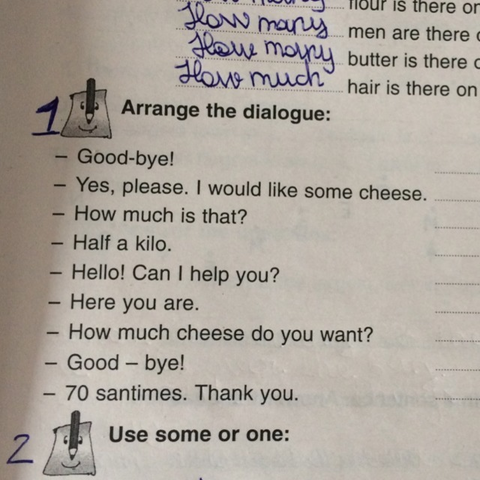 flour is there on
How many men are there
How many butter is there
How much hair is there on
1 Arrange the dialogue:
– Good-bye!
– Yes, please. I would like some cheese.
– How much is that?
– Half a kilo.
– Hello! Can I help you?
– Here you are.
– How much cheese do you want?
– Good – bye!
– 70 santimes. Thank you.
2 Use some or one: